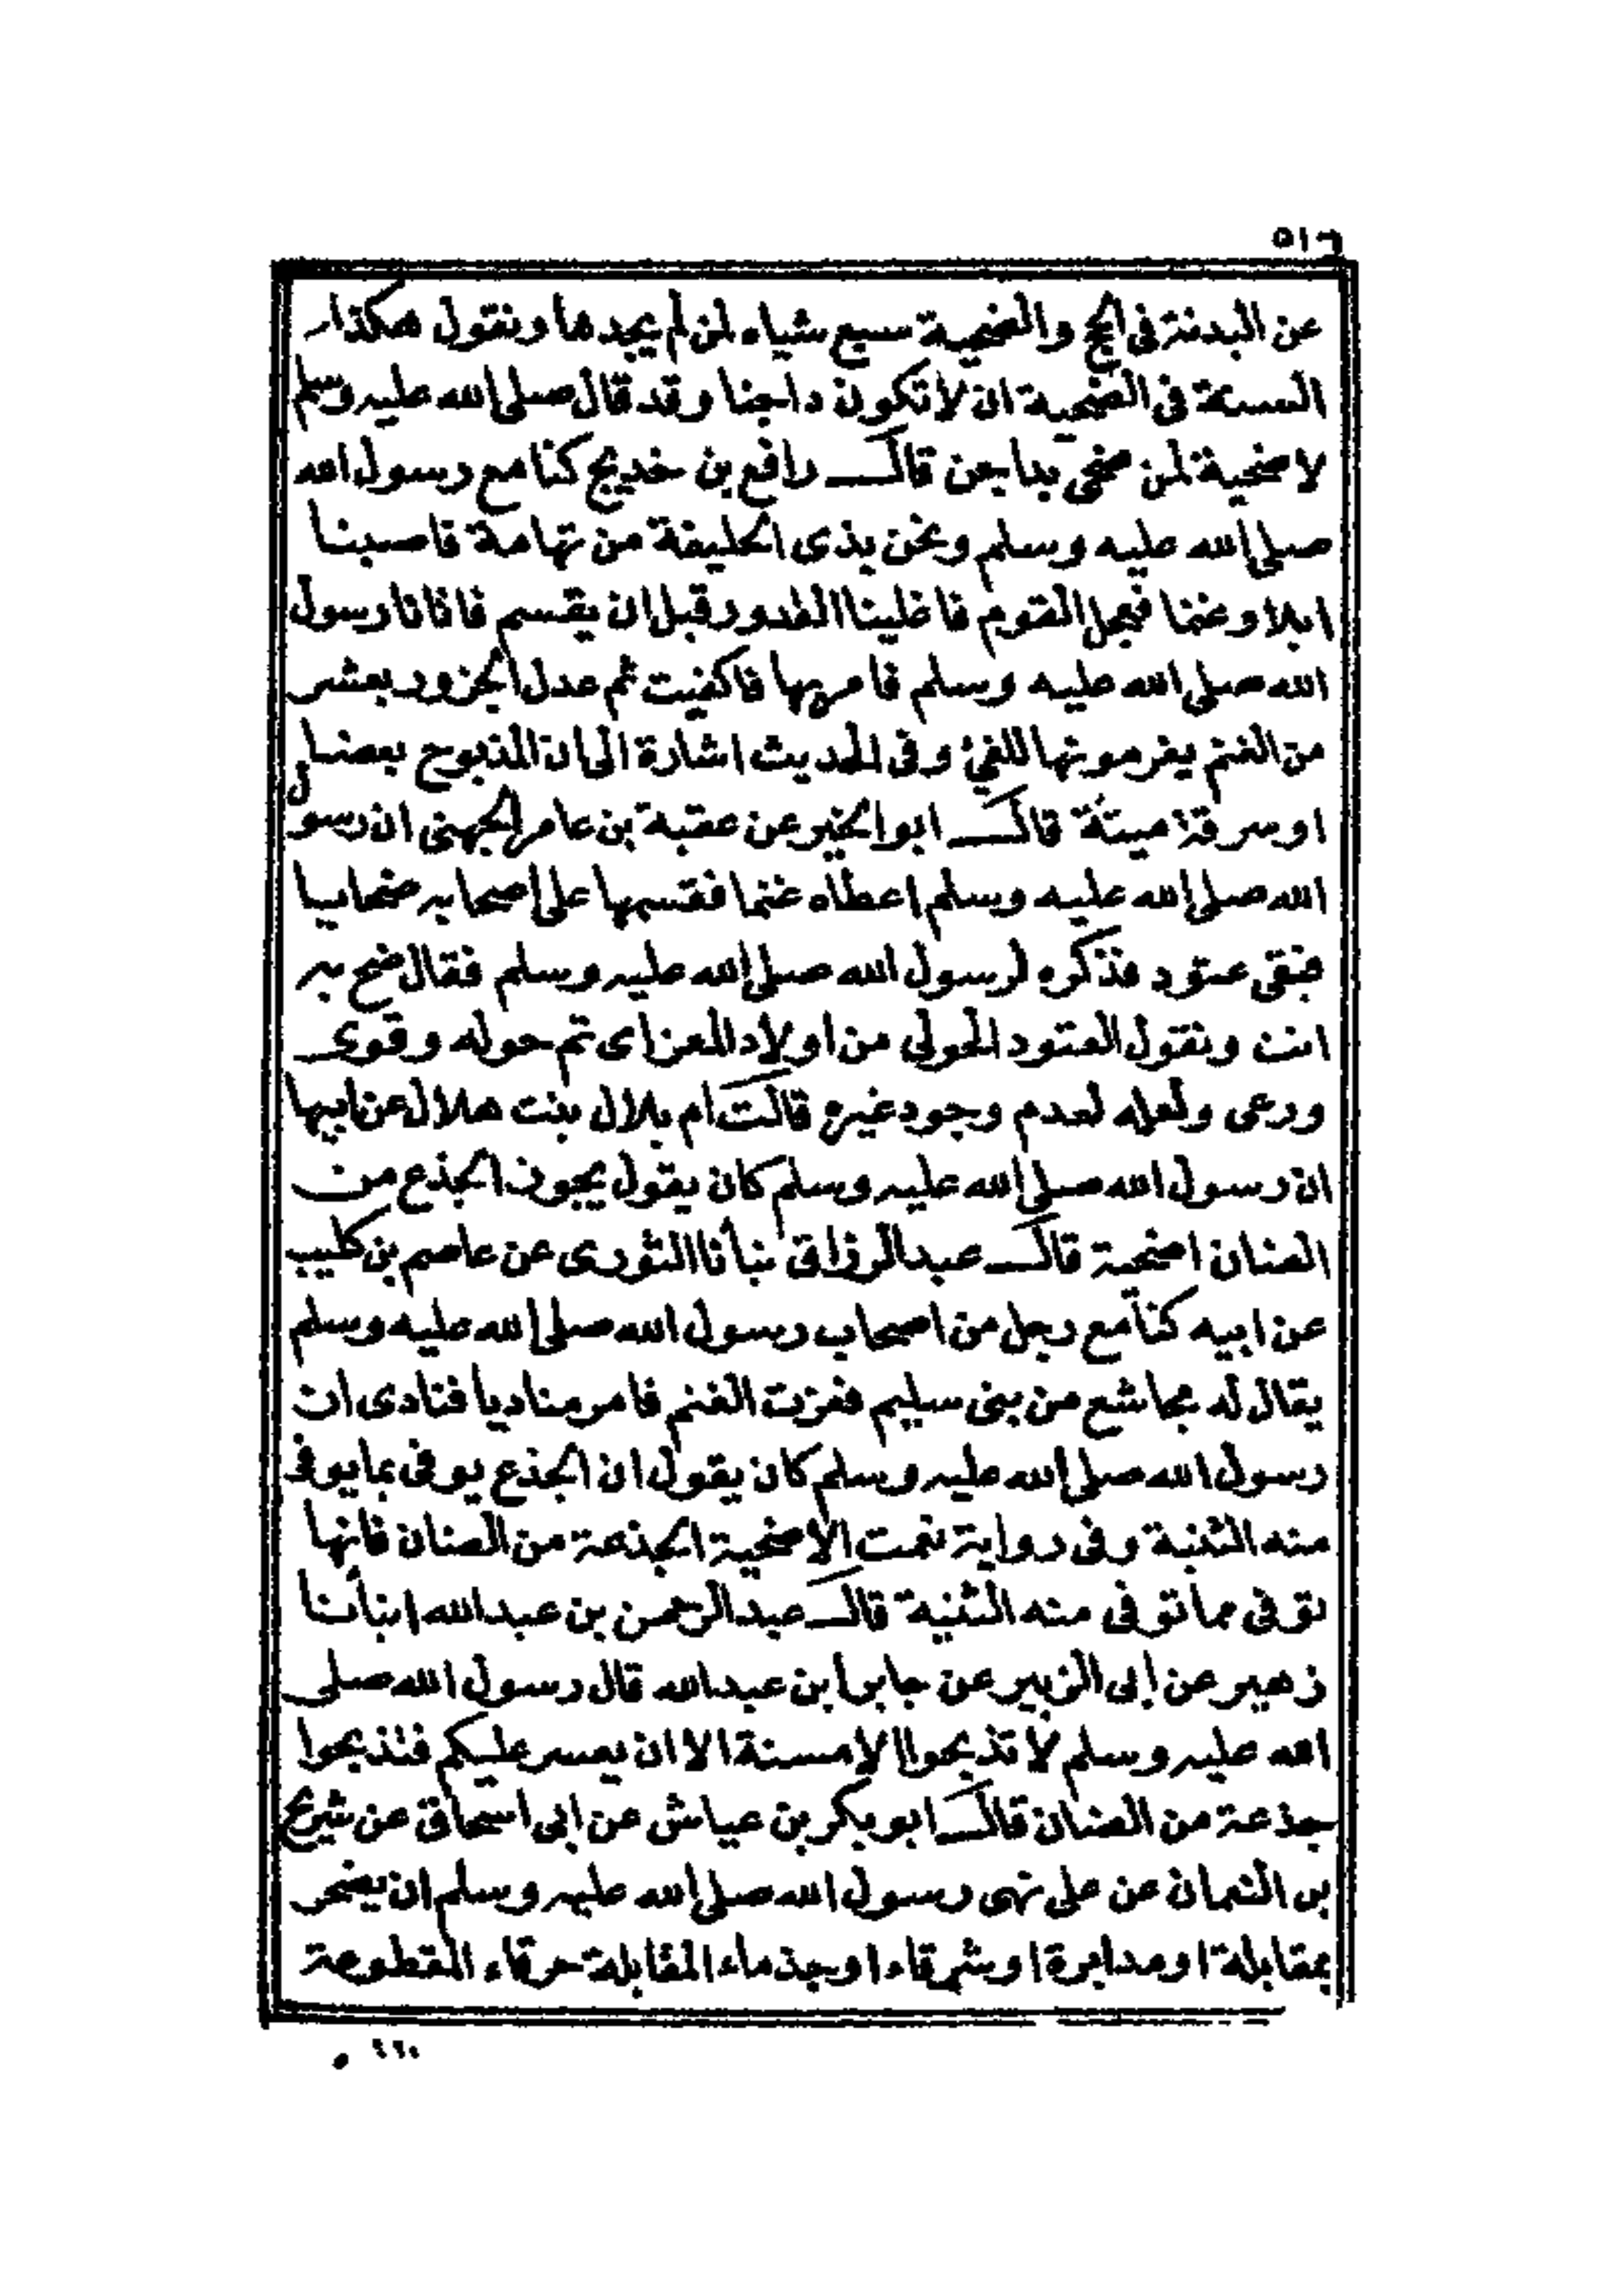 ٥١٦
عن البدنة فى الحج والضحية سبع شياه لمن لم يجدها ونقول هكذا
السنة فى الضحية ان لا تكون داجنا وقد قال صلى الله عليه وسلم
لاضحية لمن ضحى بداجن قال رافع بن خديج كنا مع رسول الله
صلى الله عليه وسلم ونحن بذى الحليفة من تهامة فاصبنا
ابلا وغنما فعجل القوم فاغلينا القدور قبل ان يقسم فاتانا رسول
الله صلى الله عليه وسلم فامر بها فاكفيت ثم عدل الجزور بعشر
من الغنم يغرمونها للفئ وفى الحديث اشارة الى ان المذبوح بعضا
او سرقة ميتة قال ابو الخير عن عقبة بن عامر الجهنى ان رسول
الله صلى الله عليه وسلم اعطاه غنما فقسمها على اصحابه ضحايا
فبقى عتود فذكره لرسول الله صلى الله عليه وسلم فقال ضح به
انت ونقول العتود الحولى من اولاد المعز اى تم حوله وقوى
ورعى ولعله لعدم وجود غيره قالت ام بلال بنت هلال عن ابيها
ان رسول الله صلى الله عليه وسلم كان يقول يجوز الجذع من
الضنان اضحية قال عبد الرزاق نبأنا الثورى عن عاصم بن كليب
عن ابيه كنا مع رجل من اصحاب رسول الله صلى الله عليه وسلم
يقال له مجاشع من بنى سليم فعزت الغنم فامر مناديا فنادى ان
رسول الله صلى الله عليه وسلم كان يقول ان الجذع يوفى بما يوفى
منه الثنية وفى رواية نعمت الاضحية الجذعة من الضنان فانها
توفى مما توفى منه الثنية قال عبد الرحمن بن عبد الله انبأنا
زهير عن ابى الزبير عن جابر ابن عبد الله قال رسول الله صلى
الله عليه وسلم لا تذبحوا الا مسنة الا ان يعسر عليكم فتذبحوا
جذعة من الضنان قال ابو بكر بن عياش عن ابى اسحاق عن شريح
بن النعمان عن على نهى رسول الله صلى الله عليه وسلم ان يضحى
بمقابلة او مدابرة او شرقاء او جذماء المقابلة حرقاء المقطوعة